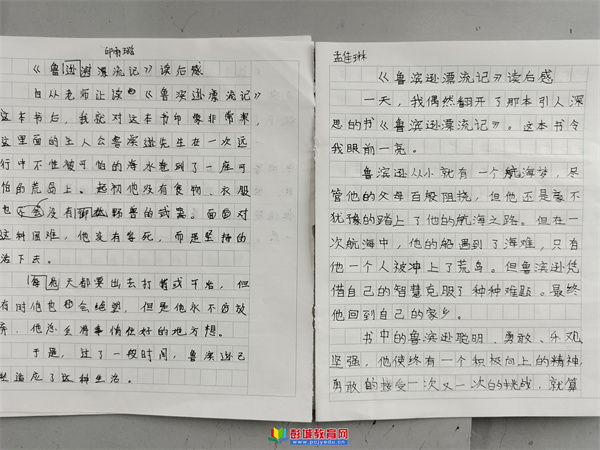 《鲁逊滨漂流记》读后感
自从老师让读《鲁滨逊漂流记》
这本书后,我就对这本书印像非常牢,
这里面的主人公鲁滨逊先生在一次远
行中不幸被可怕的海水卷到了一座可
怕的荒岛上。起初他没有食物、衣服
也没有野兽的武器。面对
这种困难,他没有等死,而是坚持的
活下去。
每天都要出去打猎或干活,但
有时他也会绝望,但是他永不言放
弃,他总会将事情往好的地方想。
于是,过了一段时间,鲁滨逊已
经适应了这种生活。
孟佳琳
《鲁滨逊漂流记》读后感
一天,我偶然翻开了那本引人深
思的书《鲁滨逊漂流记》。这本书令
我眼前一亮。
鲁滨逊从小就有一个航海梦,尽
管他的父母百般阻挠,但他还是毫不
犹豫的踏上了他的航海之路。但在一
次航海中,他的船遇到了海难,只有
他一个人被冲上了荒岛。但鲁滨逊凭
借自己的智慧克服了种种难题。最终
他回到自己的家乡。
书中的鲁滨逊聪明、勇敢、乐观
坚强,他使终有一个积极向上的精神,
勇敢的接受一次又一次的挑战,就算
彭城教育网
www.pcjyedu.cn